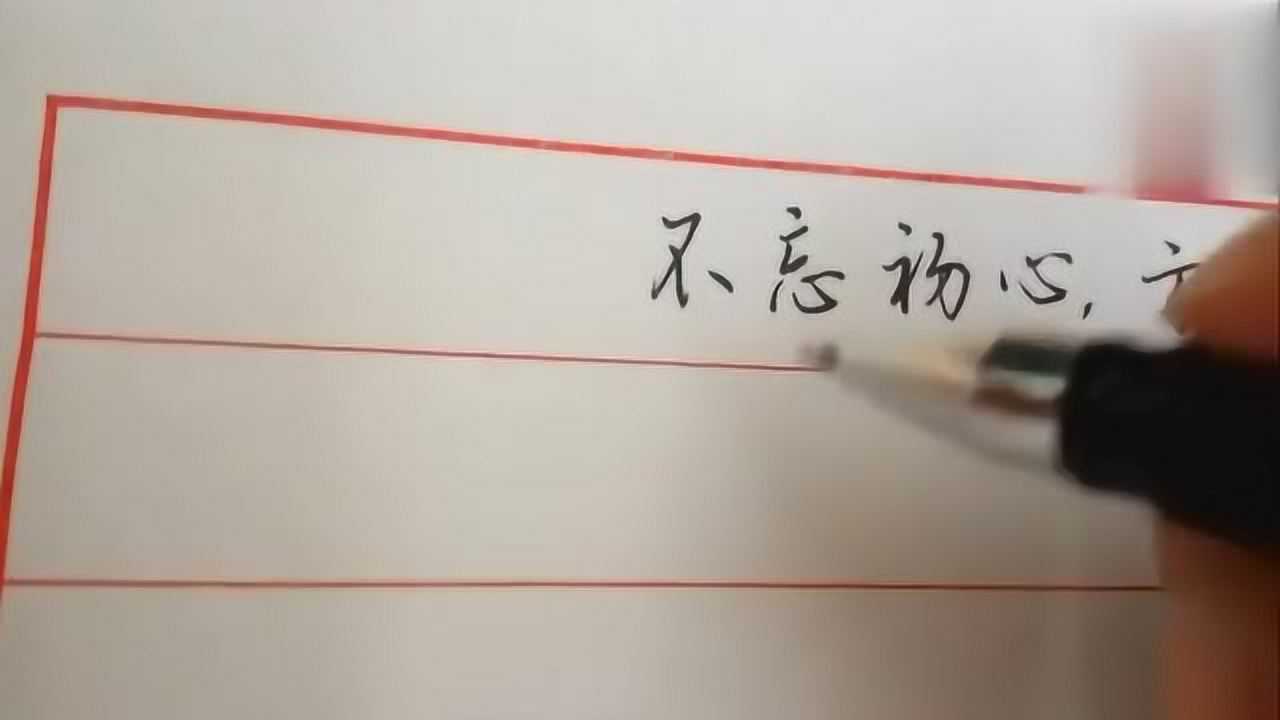 不忘初心,